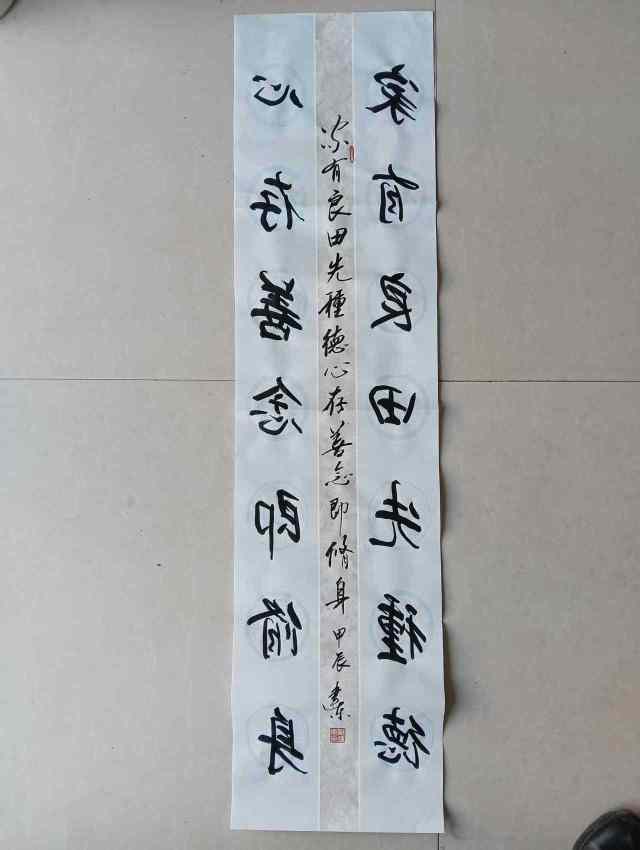 家有良田先種德
家有良田先種德心存善念即脩身甲辰
心存善念即脩身